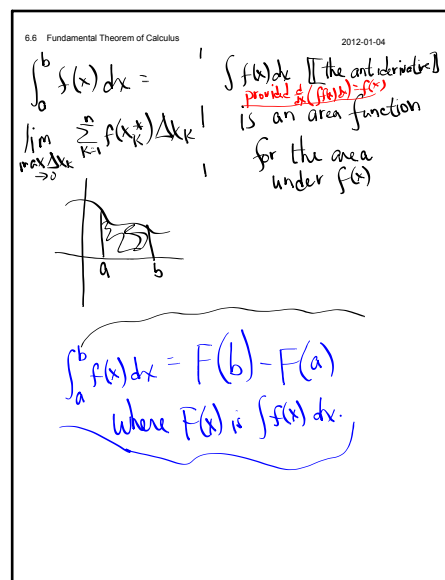 6.6 Fundamental Theorem of Calculus
2012-01-04
∫_a^b f(x) dx =
lim max Δx_k → 0 ∑_{k=1}^n f(x_k^*) Δx_k
a b
∫ f(x) dx [[the antiderivative]]
provided d/dx (∫f(x)dx) = f(x)
is an area function
for the area
under f(x)
∫_a^b f(x) dx = F(b) - F(a)
where F(x) is ∫ f(x) dx.